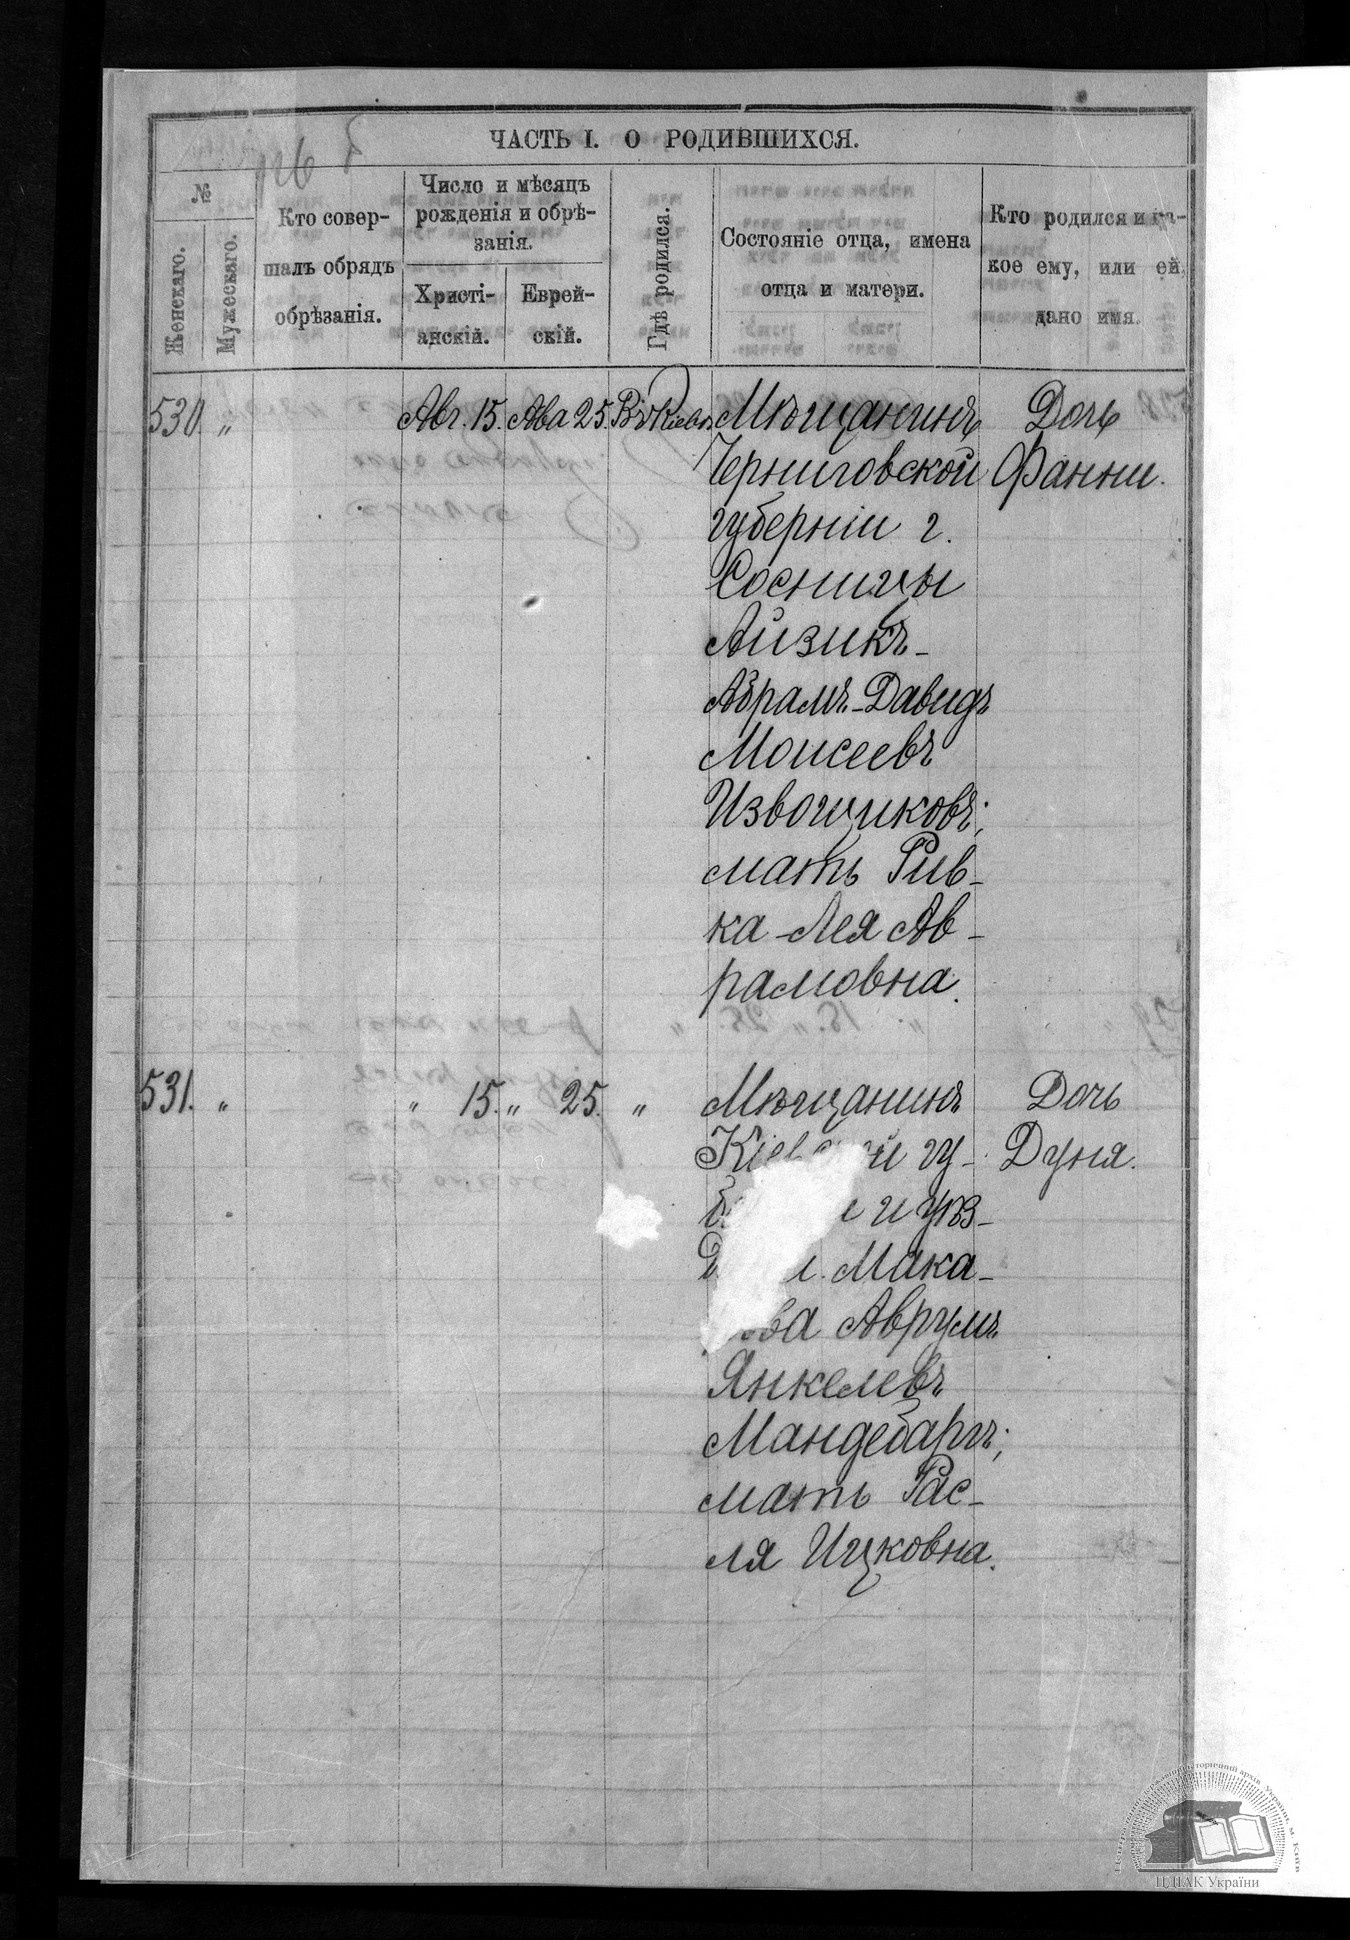 ЧАСТЬ I. О РОДИВШИХСЯ.
№
Женскаго.
Мужескаго.
Кто совер-
шалъ обрядъ
обрѣзанія.
Число и мѣсяцъ
рожденія и обрѣ-
занія.
Христі-
анскій.
Еврей-
скій.
Гдѣ родился.
Состояніе отца, имена
отца и матери.
Кто родился и ка-
кое ему, или ей
дано имя.
530. „ Авг. 15. Ава 25. Въ Кіевѣ Мѣщанинъ Дочь
Черниговской Фанни.
губерніи г.
Сосницы
Айзикъ-
Абрамъ-Давидъ
Моисеевъ
Извощиковъ;
мать Рив-
ка-Лея Ав-
рамовна.
531. „ „ 15. „ 25. „ Мѣщанинъ Дочь
Кіевской гу- Дуня.
и уѣз-
м. Мака-
ова Аврумъ
Янкелевъ
Мандебаргъ;
мать Рас-
ля Ицковна.
ЦДІАК України